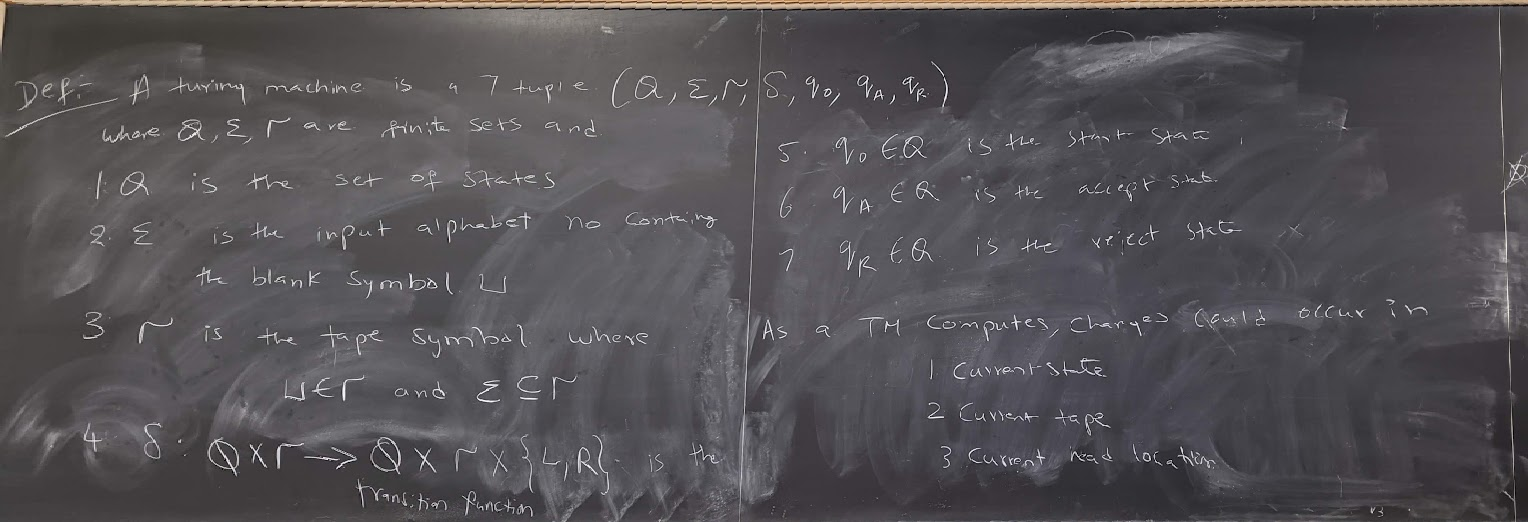 Def:- A turing machine is a 7 tuple (Q, Σ, Γ, δ, q₀, q_A, q_R)
where Q, Σ, Γ are finite sets and
1. Q is the set of states
2. Σ is the input alphabet no containg
the blank symbol ⊔
3 Γ is the tape symbol where
⊔ ∈ Γ and Σ ⊆ Γ
4 δ: Q × Γ → Q × Γ × {L, R} is the
transition function
5. q₀ ∈ Q is the start state
6 q_A ∈ Q is the accept state
7 q_R ∈ Q is the reject state
As a TM computes, changes could occur in
1 Current state
2 Current tape
3 Current head location